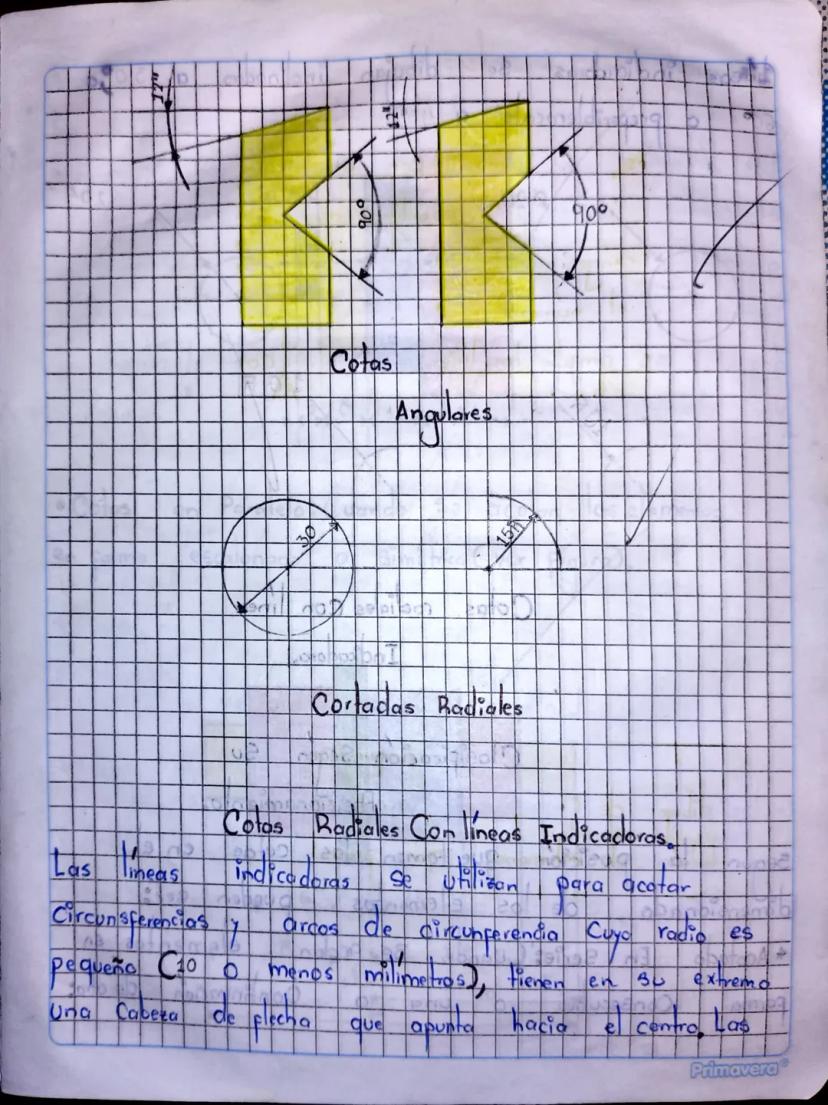 12" 12"
90° 90°
Cotas
Angulares
30 15R
Cortadas Radiales
Cotas Radiales Con líneas Indicadoras.
Las líneas indicadoras se utilizan para acotar
Circunsferencias y arcos de circunferencia Cuyo radio es
pequeño (10 o menos milímetros), tienen en su extremo
una Cabeza de flecha que apunta hacia el centro. Las
Primavera